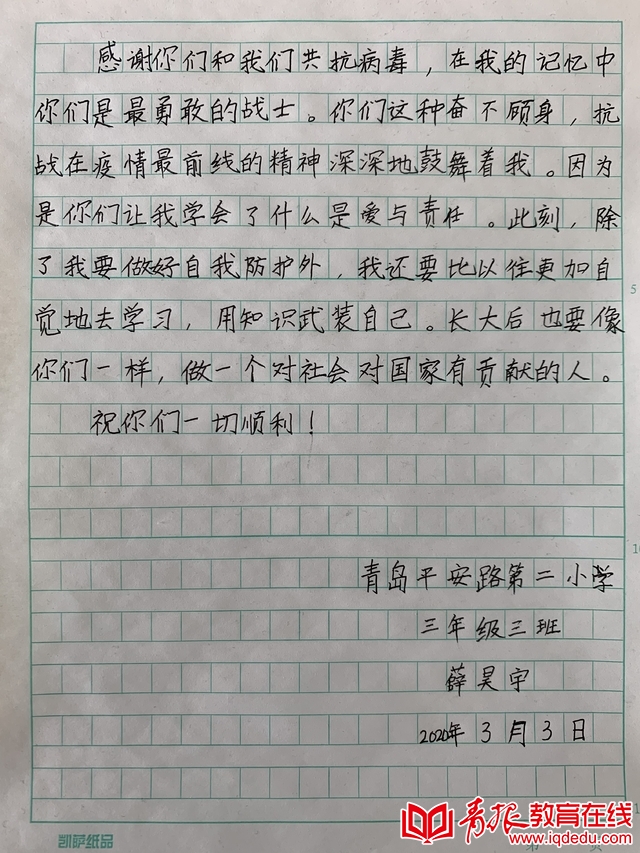 感谢你们和我们共抗病毒，在我的记忆中
你们是最勇敢的战士。你们这种奋不顾身，抗
战在疫情最前线的精神深深地鼓舞着我。因为
是你们让我学会了什么是爱与责任。此刻，除
了我要做好自我防护外，我还要比以往更加自
觉地去学习，用知识武装自己。长大后也要像
你们一样，做一个对社会对国家有贡献的人。
祝你们一切顺利！
青岛平安路第二小学
三年级三班
薛昊宇
2020年3月3日
5
凯萨纸品
第 页
青报教育在线
www.iqdedu.com